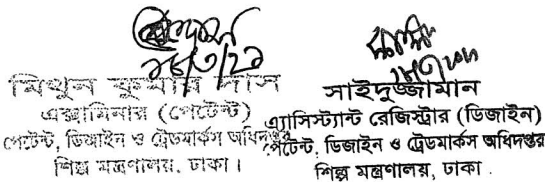 ২৮/৩/২১
মিথুন কুমার দাস
এক্সামিনার (পেটেন্ট)
পেটেন্ট, ডিজাইন ও ট্রেডমার্কস অধিদপ্তর
শিল্প মন্ত্রণালয়, ঢাকা।
সাইদুজ্জামান
এ্যাসিস্ট্যান্ট রেজিস্ট্রার (ডিজাইন)
পেটেন্ট, ডিজাইন ও ট্রেডমার্কস অধিদপ্তর
শিল্প মন্ত্রণালয়, ঢাকা.